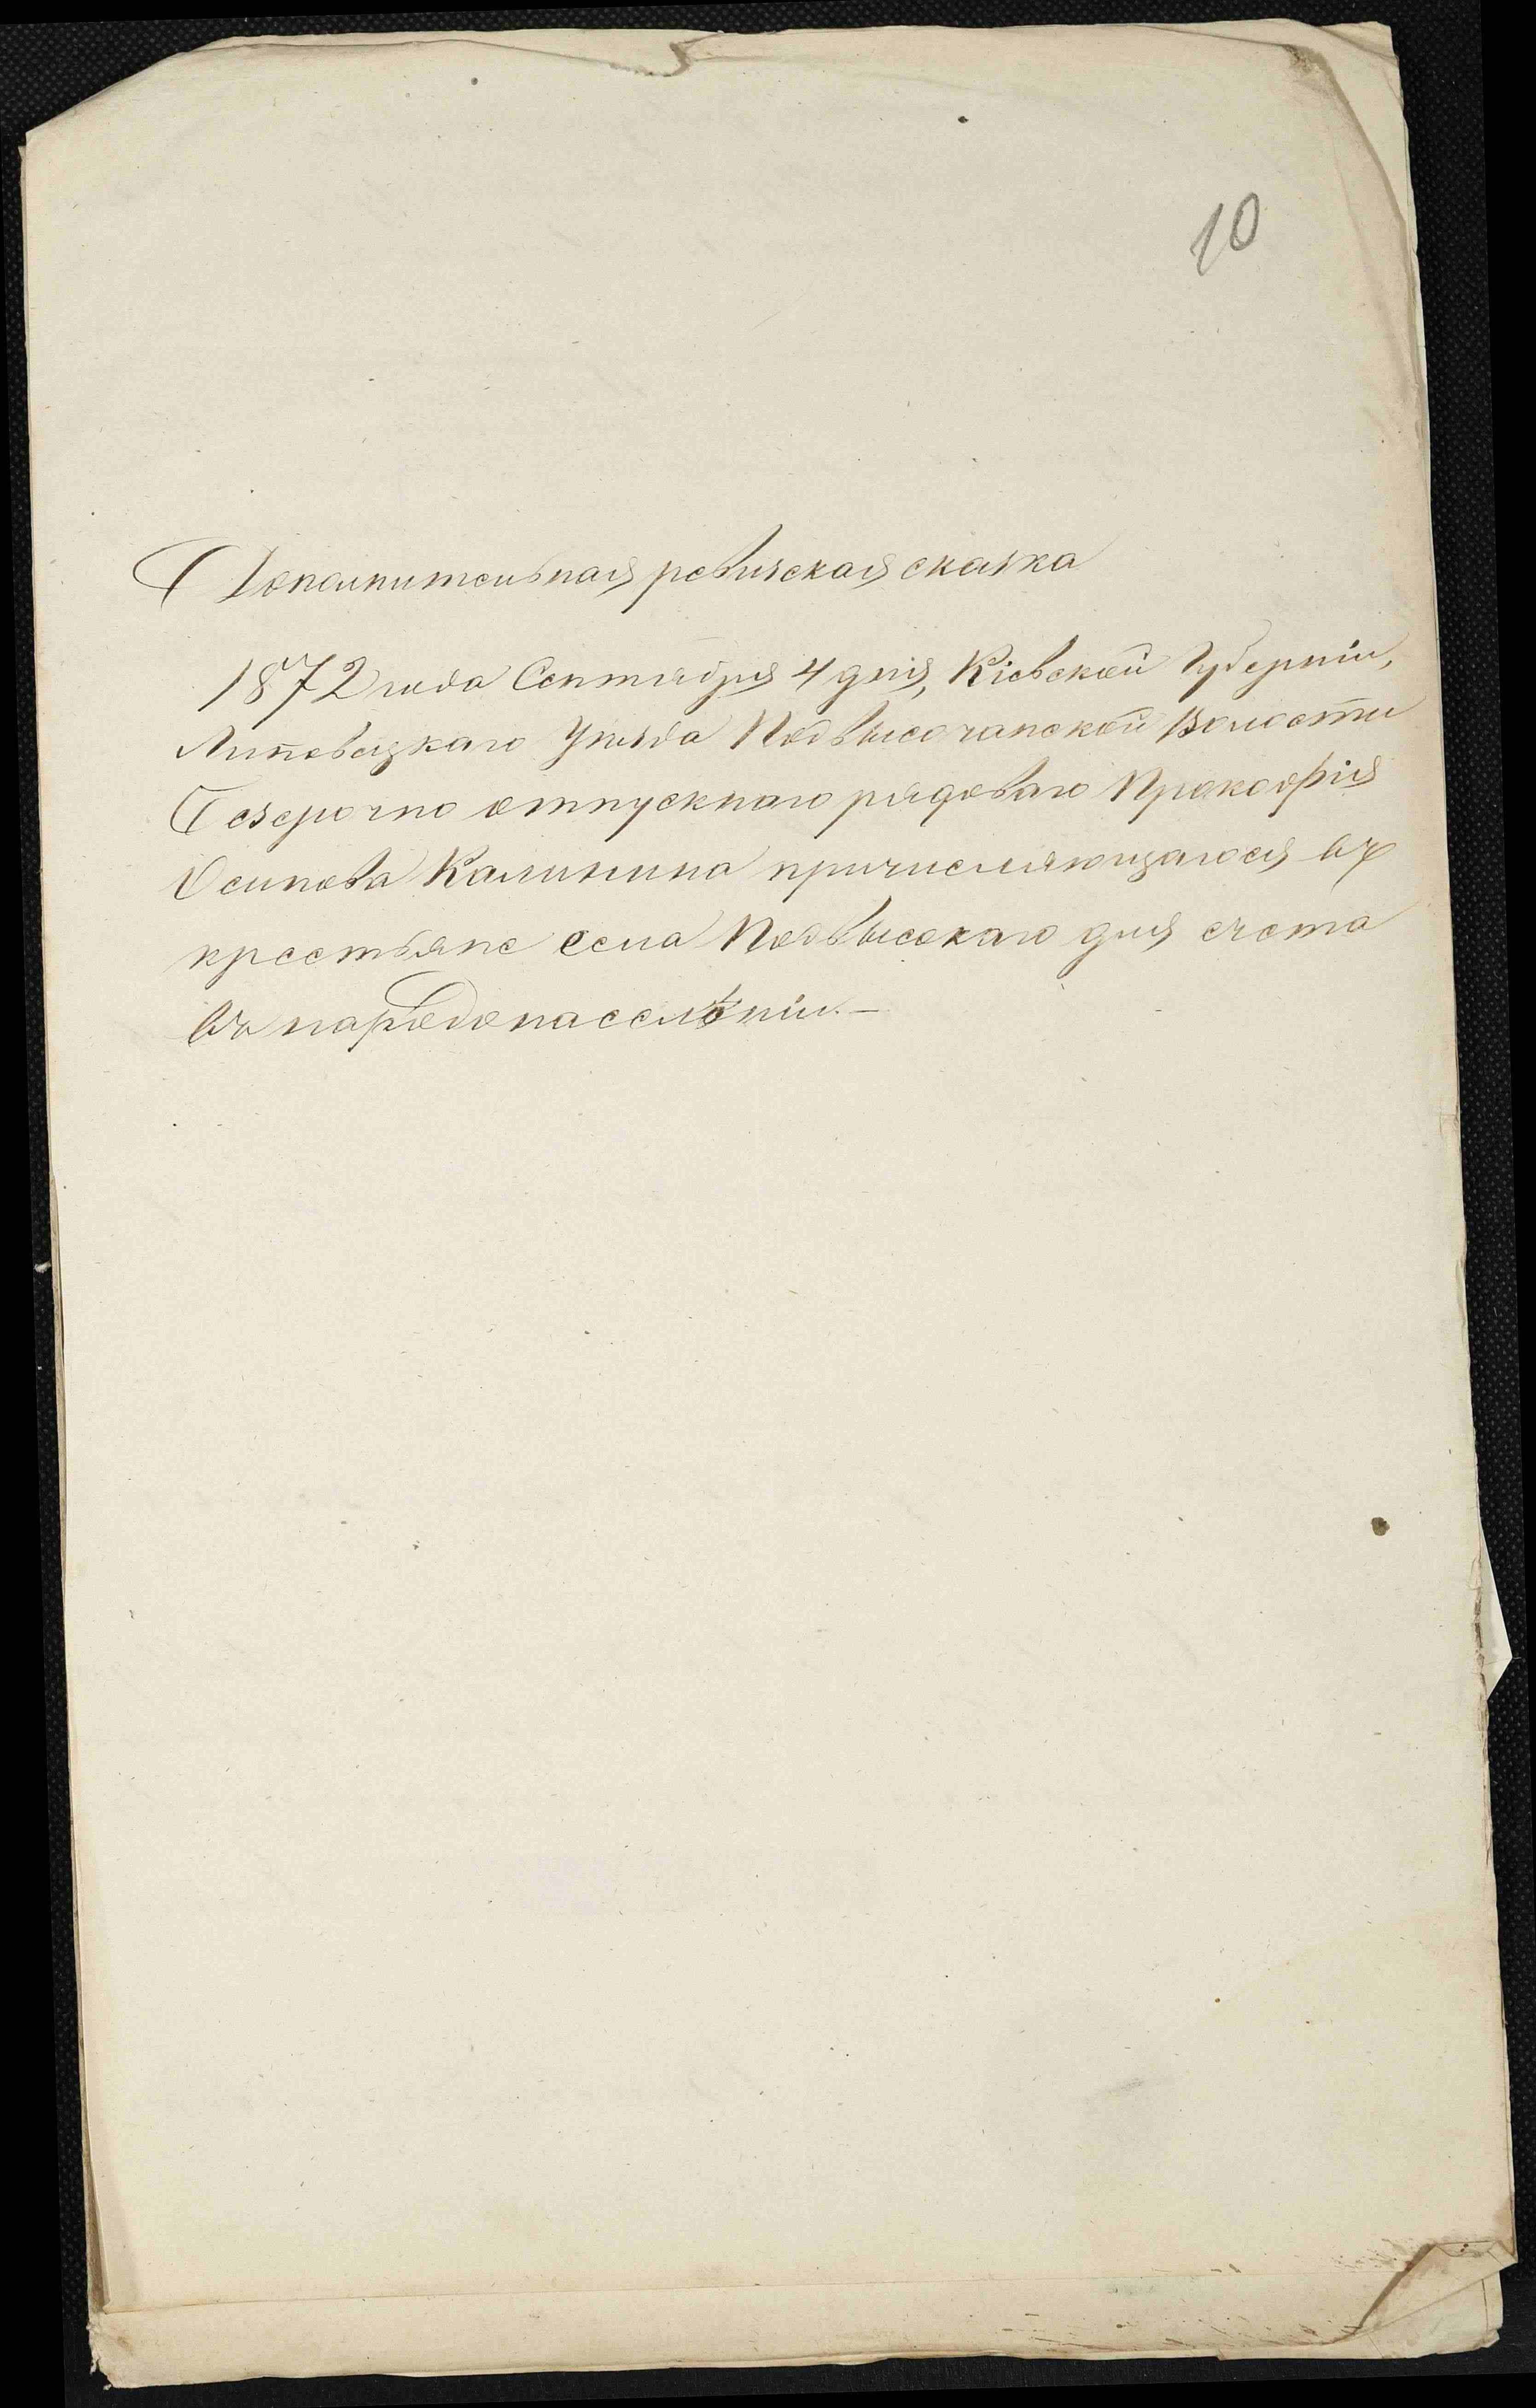 10
Дополнительная ревизская сказка
1872 года Сентября 4 дня, Кіевской Губерніи,
Липовецкаго Уѣзда Подвысочанской Волости
Безсрочно отпускнаго рядоваго Прокофія
Осипова Калинина причисляющагося въ
крестьяне села Подвысокаго для счета
въ народонаселѣніи.—